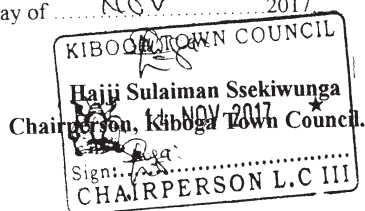 ay of ........ Nov ........ 2017
KIBOGA TOWN COUNCIL
Hajji Sulaiman Ssekiwunga
14 NOV 2017 ★
Chairperson, Kiboga Town Council.
Sign:...........................
CHAIRPERSON L.C III